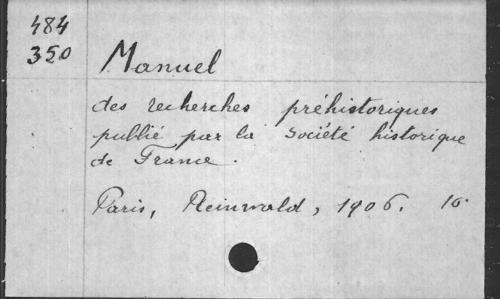 484
350
Manuel
des recherches préhistoriques
publié par la Société historique
de France.
Paris, Reinwald, 1906. 16.